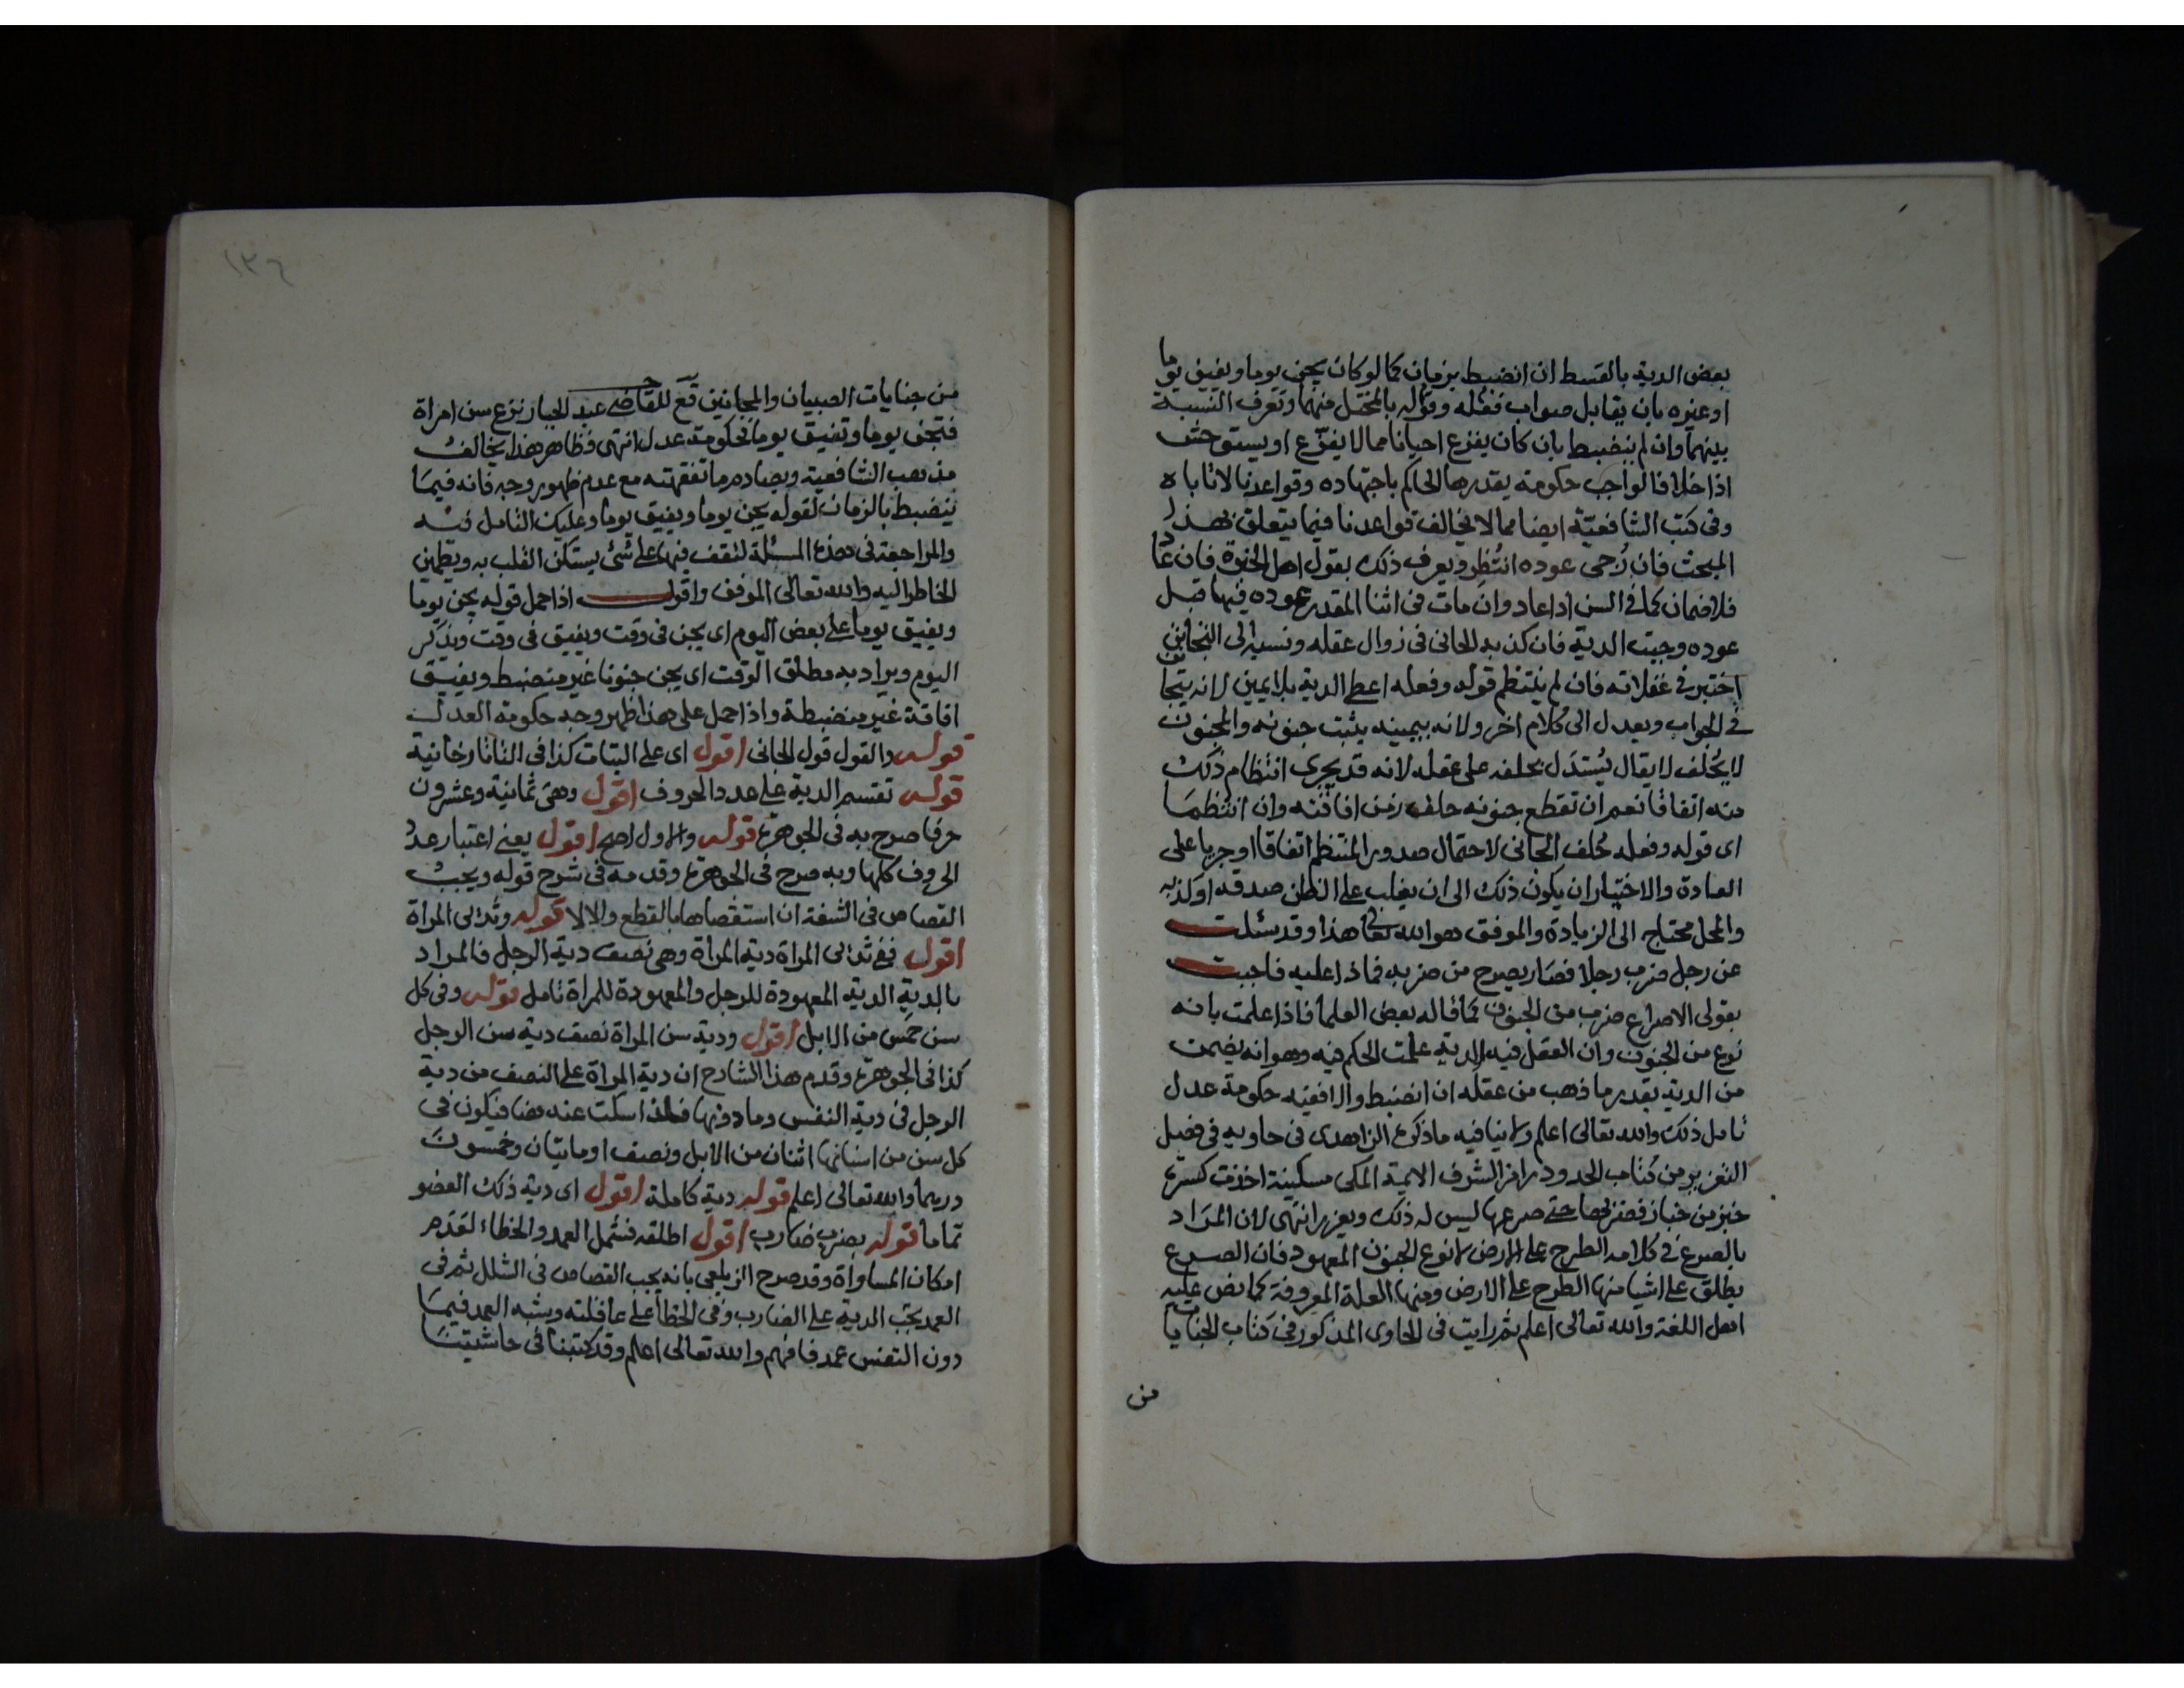 بعض الدية بالقسط ان انضبط بزمان كما لو كان يجن يوما ويفيق يوما
او غيره بان يقابل صواب فعله وقوله بالمختل منهما وتعرف النسبة
بينهما وان لم ينضبط بان كان يفزع احيانا مما لا يفزع او يستوحش
اذا خلا فالواجب حكومة يقدرها الحاكم باجتهاده وقواعدنا لا تاباه
وفى كتب الشافعية ايضا مما لا يخالف قواعدنا فيما يتعلق بهذا
المبحث فان رُجى عوده انتُظِر ويعرف ذلك بقول اهل الخبرة فان عاد
فلا ضمان كما فى السن اذا عاد وان مات فى اثنا المقدر عوده فيها قبل
عوده وجبت الدية فان كذبه الجانى فى زوال عقله ونسبه الى التجانن
اختبر فى غفلاته فان لم ينتظم قوله وفعله اعطى الدية بلا يمين لانه يتجانن
فى الجواب ويعدل الى كلام اخر ولانه بيمينه يثبت جنونه والمجنون
لا يُحلف لا يقال يُستدَل بحلفه على عقله لانه قد يجرى انتظام ذلك
منه اتفاقا نعم ان تقطع جنونه حلف زمن افاقته وان انتظما
اى قوله وفعله حُلف الجانى لاحتمال صدور المنتظم اتفاقا او جريا على
العادة والاختبار ان يكون ذلك الى ان يغلب على الظن صدقه او كذبه
والمحل محتاج الى الزيادة والموفق هو الله تعالى هذا وقد سئلت
عن رجل ضرب رجلا فصار يصرع من ضربه فماذا عليه فاجبت
بقولى الاصراع ضرب من الجنون كما قاله بعض العلما فاذا علمت بانه
نوع من الجنون وان العقل فيه الدية علمت الحكم فيه وهو انه يضمن
من الدية بقدر ما ذهب من عقله ان انضبط والا ففيه حكومة عدل
تامل ذلك والله تعالى اعلم ولا ينافيه ما ذكره الزاهدى فى حاويه فى فصل
التعزير من كتاب الحدود رامزا لشرف الايمة المكى مسكينة اخذت كسرة
خبز من خباز فضربها حتى صرعها ليس له ذلك ويعزر انتهى لان المراد
بالصرع فى كلامه الطرح على الارض لا نوع الجنون المعهود فان الصرع
يطلق على اشيا منها الطرح على الارض ومنها العلة المعروفة كما نص عليه
اهل اللغة والله تعالى اعلم ثم رايت فى الحاوى المذكور فى كتاب الجنايات
من
١٣٦
من جنايات الصبيان والمجانين قع للقاضى عبد الجبار نزع سن امراة
فتجن يوما وتفيق يوما فحكومة عدل انتهى فظاهر هذا يخالف
مذهب الشافعية ويصادم ما تفقهته مع عدم ظهور وجه فانه فيما
ينضبط بالزمان لقوله يجن يوما ويفيق يوما وعليك التامل فيه
والمراجعة فى هذه المسئلة لتقف فيها على شئ يستكن القلب به ويطمين
الخاطر اليه والله تعالى الموفق واقول اذا حمل قوله يجن يوما
ويفيق يوما على بعض اليوم اى يجن فى وقت ويفيق فى وقت ويذكر
اليوم ويراد به مطلق الوقت اى يجن جنونا غير منضبط ويفيق
افاقة غير منضبطة واذا حمل على هذا ظهر وجه حكومة العدل
قوله والقول قول الجانى اقول اى على البتات كذا فى التاتارخانية
قوله تقسم الدية على عدد الحروف اقول وهى ثمانية وعشرون
حرفا صرح به فى الجوهرة قوله والاول اصح اقول يعنى اعتبار عدد
الحروف كلها وبه صرح فى الجوهرة وقدمه فى شرح قوله ويجب
القصاص فى الشفة ان استقصاها بالقطع والا لا قوله وثديى المراة
اقول ففى ثديى المراة دية المراة وهى نصف دية الرجل فالمراد
بالدية الدية المعهودة للرجل والمعهودة للمراة تامل قوله وفى كل
سن خمس من الابل اقول ودية سن المراة نصف دية سن الرجل
كذا فى الجوهرة وقدم هذا الشارح ان دية المراة على النصف من دية
الرجل فى دية النفس وما دونها فلذا سكت عنه هنا فيكون فى
كل سن من اسنانها اثنان من الابل ونصف او مايتان وخمسون
درهما والله تعالى اعلم قوله دية كاملة اقول اى دية ذلك العضو
تماما قوله بضرب ضارب اقول اطلقه فشمل العمد والخطاء لتقدم
امكان المساواة وقد صرح الزيلعى بانه يجب القصاص فى الشلل ثم فى
العمد يجب الدية على الضارب وفى الخطأ على عاقلته وشبه العمد فيما
دون النفس عمد فافهم والله تعالى اعلم وقد كتبنا فى حاشيتنا